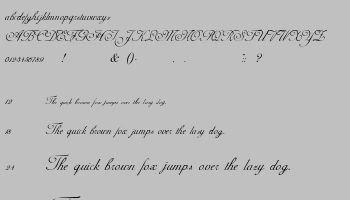 abcdefghijklmnopqrstuvwxyz
ABCDEFGHIJKLMNOPQRSTUVWXYZ
0123456789 ! & () . . :; ?
12 The quick brown fox jumps over the lazy dog.
18 The quick brown fox jumps over the lazy dog.
24 The quick brown fox jumps over the lazy dog.